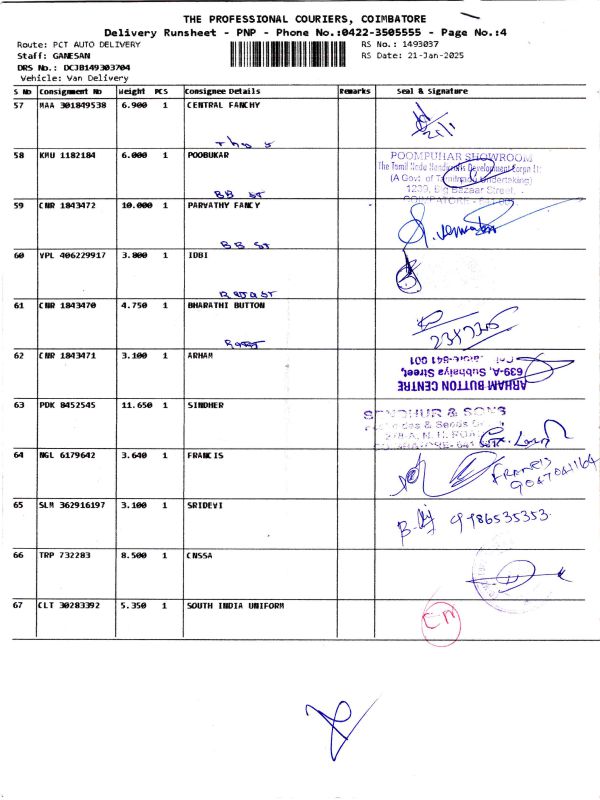 THE PROFESSIONAL COURIERS, COIMBATORE
Delivery Runsheet - PNP - Phone No.:0422-3505555 - Page No.:4
Route: PCT AUTO DELIVERY
RS No.: 1493037
Staff: GANESAN
RS Date: 21-Jan-2025
DRS No.: DCJB149303704
Vehicle: Van Delivery
S No Consignment No Weight PCS Consignee Details Remarks Seal & Signature
57 MAA 301849538 6.900 1 CENTRAL FANCHY
58 KMU 1182184 6.000 1 POOBUKAR
BB ST
POOMPUHAR SHOWROOM
The Tamil Nadu Handicrafts Development Corpn Lt
(A Govt of Tamilnadu Undertaking)
1239, Big Bazaar Street,
COIMBATORE
59 CNR 1843472 10.000 1 PARVATHY FANCY
BB ST
60 VPL 406229917 3.800 1 IDBI
61 CNR 1843470 4.750 1 BHARATHI BUTTON
62 CNR 1843471 3.100 1 ARHAM
ARHAM BUTTON CENTRE
639-A, Subbaiya Street,
63 PDK 8452545 11.650 1 SINDHER
& SONS
64 NGL 6179642 3.640 1 FRANCIS
FRANCIS
9047041164
65 SLM 362916197 3.100 1 SRIDEVI
9986535353
66 TRP 732283 8.500 1 CNSSA
67 CLT 30283392 5.350 1 SOUTH INDIA UNIFORM